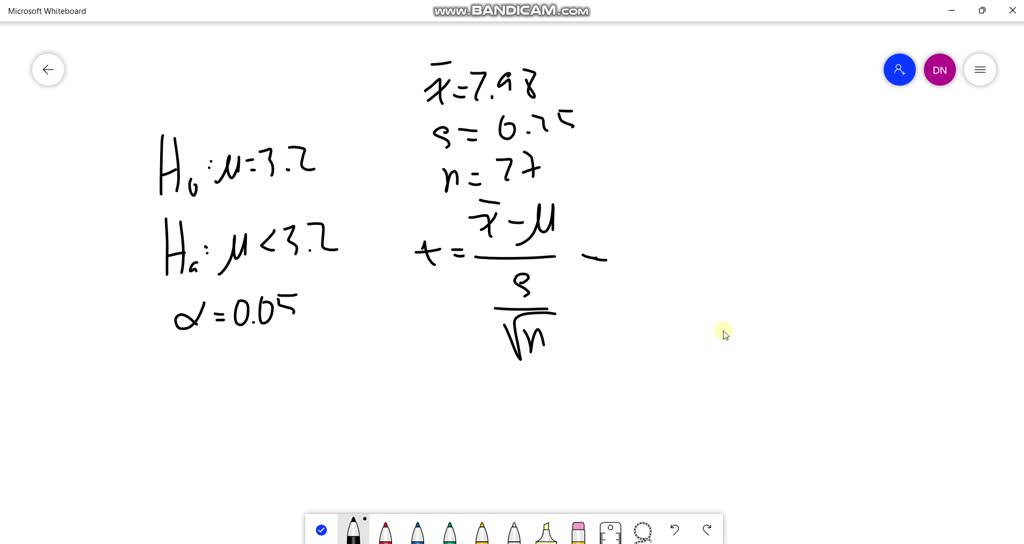 Microsoft Whiteboard
www.BANDICAM.com
DN
H₀: μ=3.2
Hₐ: μ<3.2
α=0.05
x̄=7.98
s=0.25
n=27
t = (x̄-μ)/(s/√n) -